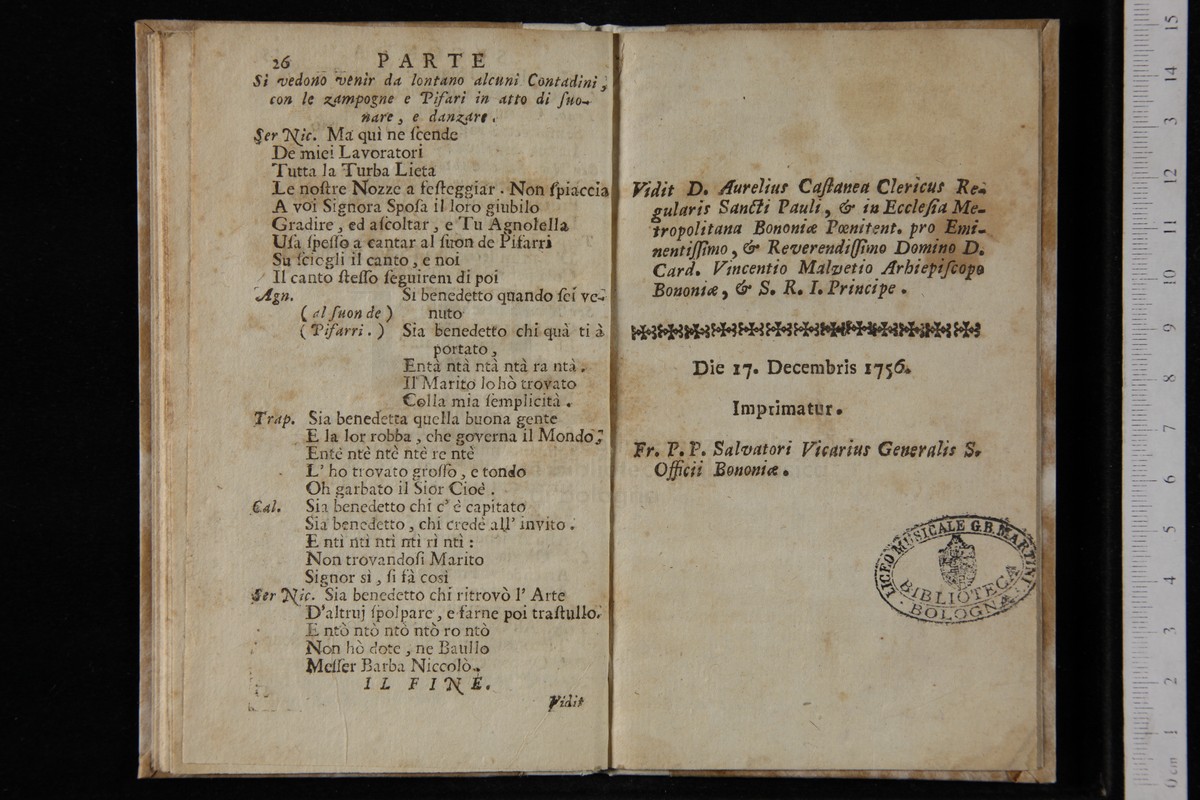 26 PARTE
Si vedono venir da lontano alcuni Contadini,
con le zampogne e Pifari in atto di ſuo-
nare, e danzare.
Ser Nic. Ma quì ne ſcende
De miei Lavoratori
Tutta la Turba Lieta
Le noſtre Nozze a feſteggiar. Non ſpiaccia
A voi Signora Spoſa il loro giubilo
Gradire, ed aſcoltar, e Tu Agnoleſſa
Uſa ſpeſſo a cantar al ſuon de Pifarri
Su ſciogli il canto, e noi
Il canto ſteſſo ſeguirem di poi
Agn. Si benedetto quando ſei ve-
(al ſuon de) nuto
(Pifarri.) Sia benedetto chi quà ti à
portato,
Entà ntà ntà ntà ra ntà.
Il Marito lo hò trovato
Colla mia ſemplicità.
Trap. Sia benedetta quella buona gente
E la lor robba, che governa il Mondo;
Entè ntè ntè ntè re ntè
L' ho trovato groſſo, e tondo
Oh garbato il Sior Cioè.
Cal. Sia benedetto chi c' è capitato
Sia benedetto, chi crede all' invito.
E nti nti nti nti ri nti:
Non trovandoſi Marito
Signor sì, ſi fà così
Ser Nic. Sia benedetto chi ritrovò l' Arte
D'altruj ſpolpare, e farne poi traſtullo.
E ntò ntò ntò ntò ro ntò
Non hò dote, ne Baullo
Meſſer Barba Niccolò.
IL FINE.
Vidit
Vidit D. Aurelius Caſtanea Clericus Re-
gularis Sancti Pauli, & in Eccleſia Me-
tropolitana Bononiæ Pœnitent. pro Emi-
nentiſſimo, & Reverendiſſimo Domino D.
Card. Vincentio Malvetio Arhiepiſcopo
Bononiæ, & S. R. I. Principe.
Die 17. Decembris 1756.
Imprimatur.
Fr. P. P. Salvatori Vicarius Generalis S.
Officii Bononiæ.
LICEO MUSICALE G.B. MARTINI
BIBLIOTECA
BOLOGNA
0 cm 1 2 3 4 5 6 7 8 9 10 11 12 3 14 15